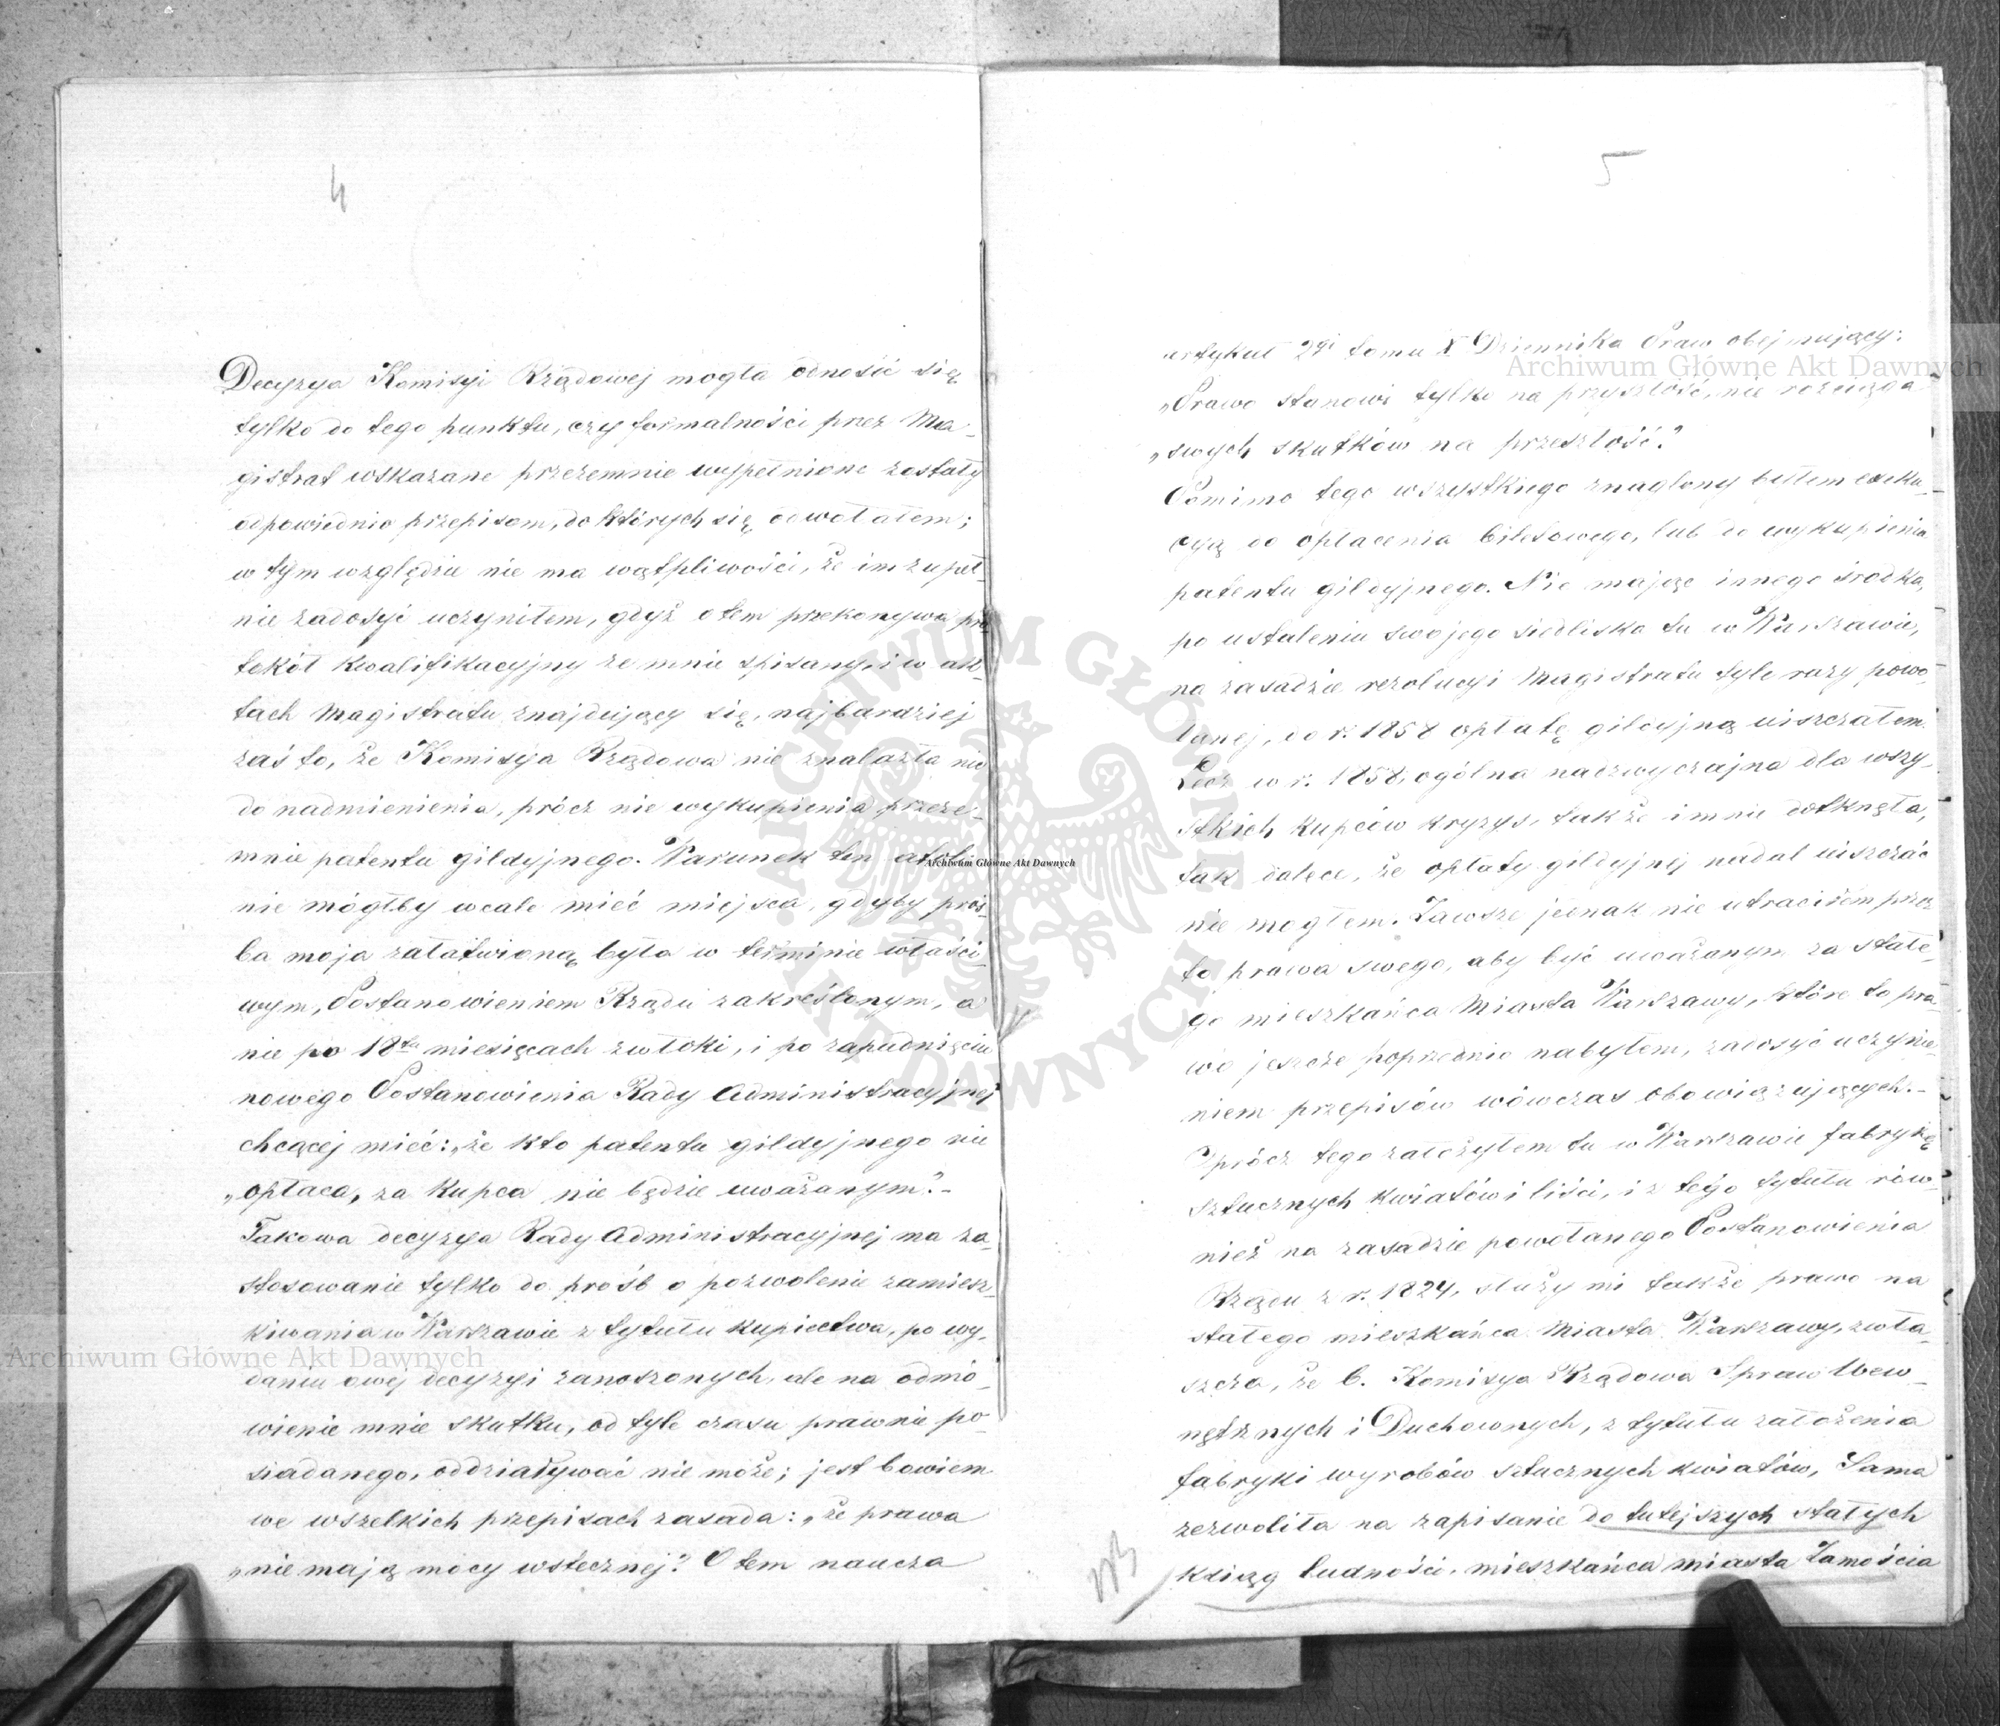 4
Decyzya Komisyi Rządowej mogła odnosić się
tylko do tego punktu, czy formalności przez Ma-
gistrat wskazane przezemnie wypełnione zostały
odpowiednio przepisom, do których się odwołałem;
w tym względzie nie ma wątpliwości, że im zupeł-
nie zadosyć uczyniłem, gdyż o tem przekonywa pro-
tokół kwalifikacyjny ze mnie spisany, i w ak-
tach Magistratu znajdujący się, najbardziej
zaś to, że Komisyja Rządowa nie znalazła nic
do nadmienienia, prócz nie wykupienia przeze-
mnie patentu gildyjnego. Warunek ten
nie mógłby wcale mieć miejsca, gdyby proś-
ba moja załatwioną była w terminie właści-
wym, Postanowieniem Rządu zakreślonym, a
nie po 18tu miesiącach zwłoki, i po zapadnięciu
nowego Postanowienia Rady Administracyjnej
chcącej mieć: „że kto patentu gildyjnego nie
„opłaca, za kupca nie będzie uważanym".-
Takowa decyzya Rady Administracyjnej ma za-
stosowanie tylko do próśb o pozwolenie zamiesz-
kiwania w Warszawie z tytułu kupiectwa, po wy-
daniu owej decyzyi zanoszonych, ale na odmó-
wienie mnie skutku, od tyle czasu prawnie po-
siadanego, oddziaływać nie może; jest bowiem
we wszelkich przepisach zasada: „że prawa
„nie mają mocy wstecznej". O tem naucza
5
artykuł 2gi tomu X Dziennika Praw obejmujący:
„Prawo stanowi tylko na przyszłość, nie rozciąga
„swych skutków na przeszłość".
Pomimo tego wszystkiego znaglony byłem exeku-
cyą do opłacenia biletowego, lub do wykupienia
patentu gildyjnego. Nie mając innego środka,
po ustaleniu swojego siedliska tu w Warszawie,
na zasadzie rezolucyi Magistratu tyle razy powo-
łanej, do r. 1858 opłatę gildyjną uiszczałem.
Lecz w r. 1858, ogólna nadzwyczajna dla wszy-
stkich kupców kryzys, także i mnie dotknęła,
tak dalece, że opłaty gildyjnej nadal uiszczać
nie mogłem. Zawsze jednak nie utraciłem przez
to prawa swego, aby być uważanym za stałe-
go mieszkańca Miasta Warszawy, które to pra-
wo jeszcze poprzednio nabyłem, zadosyć uczynie-
niem przepisów wówczas obowiązujących.-
Oprócz tego założyłem tu w Warszawie fabrykę
sztucznych kwiatów i liści, i z tego tytułu rów-
nież na zasadzie powołanego Postanowienia
Rządu z r. 1824, służy mi także prawo na
stałego mieszkańca Miasta Warszawy, zwła-
szcza, że b. Komisya Rządowa Spraw Wew-
nętrznych i Duchownych, z tytułu założenia
fabryki wyrobów sztucznych kwiatów, Sama
zezwoliła na zapisanie do tutejszych stałych
ksiąg ludności, mieszkańca miasta Zamościa
NB